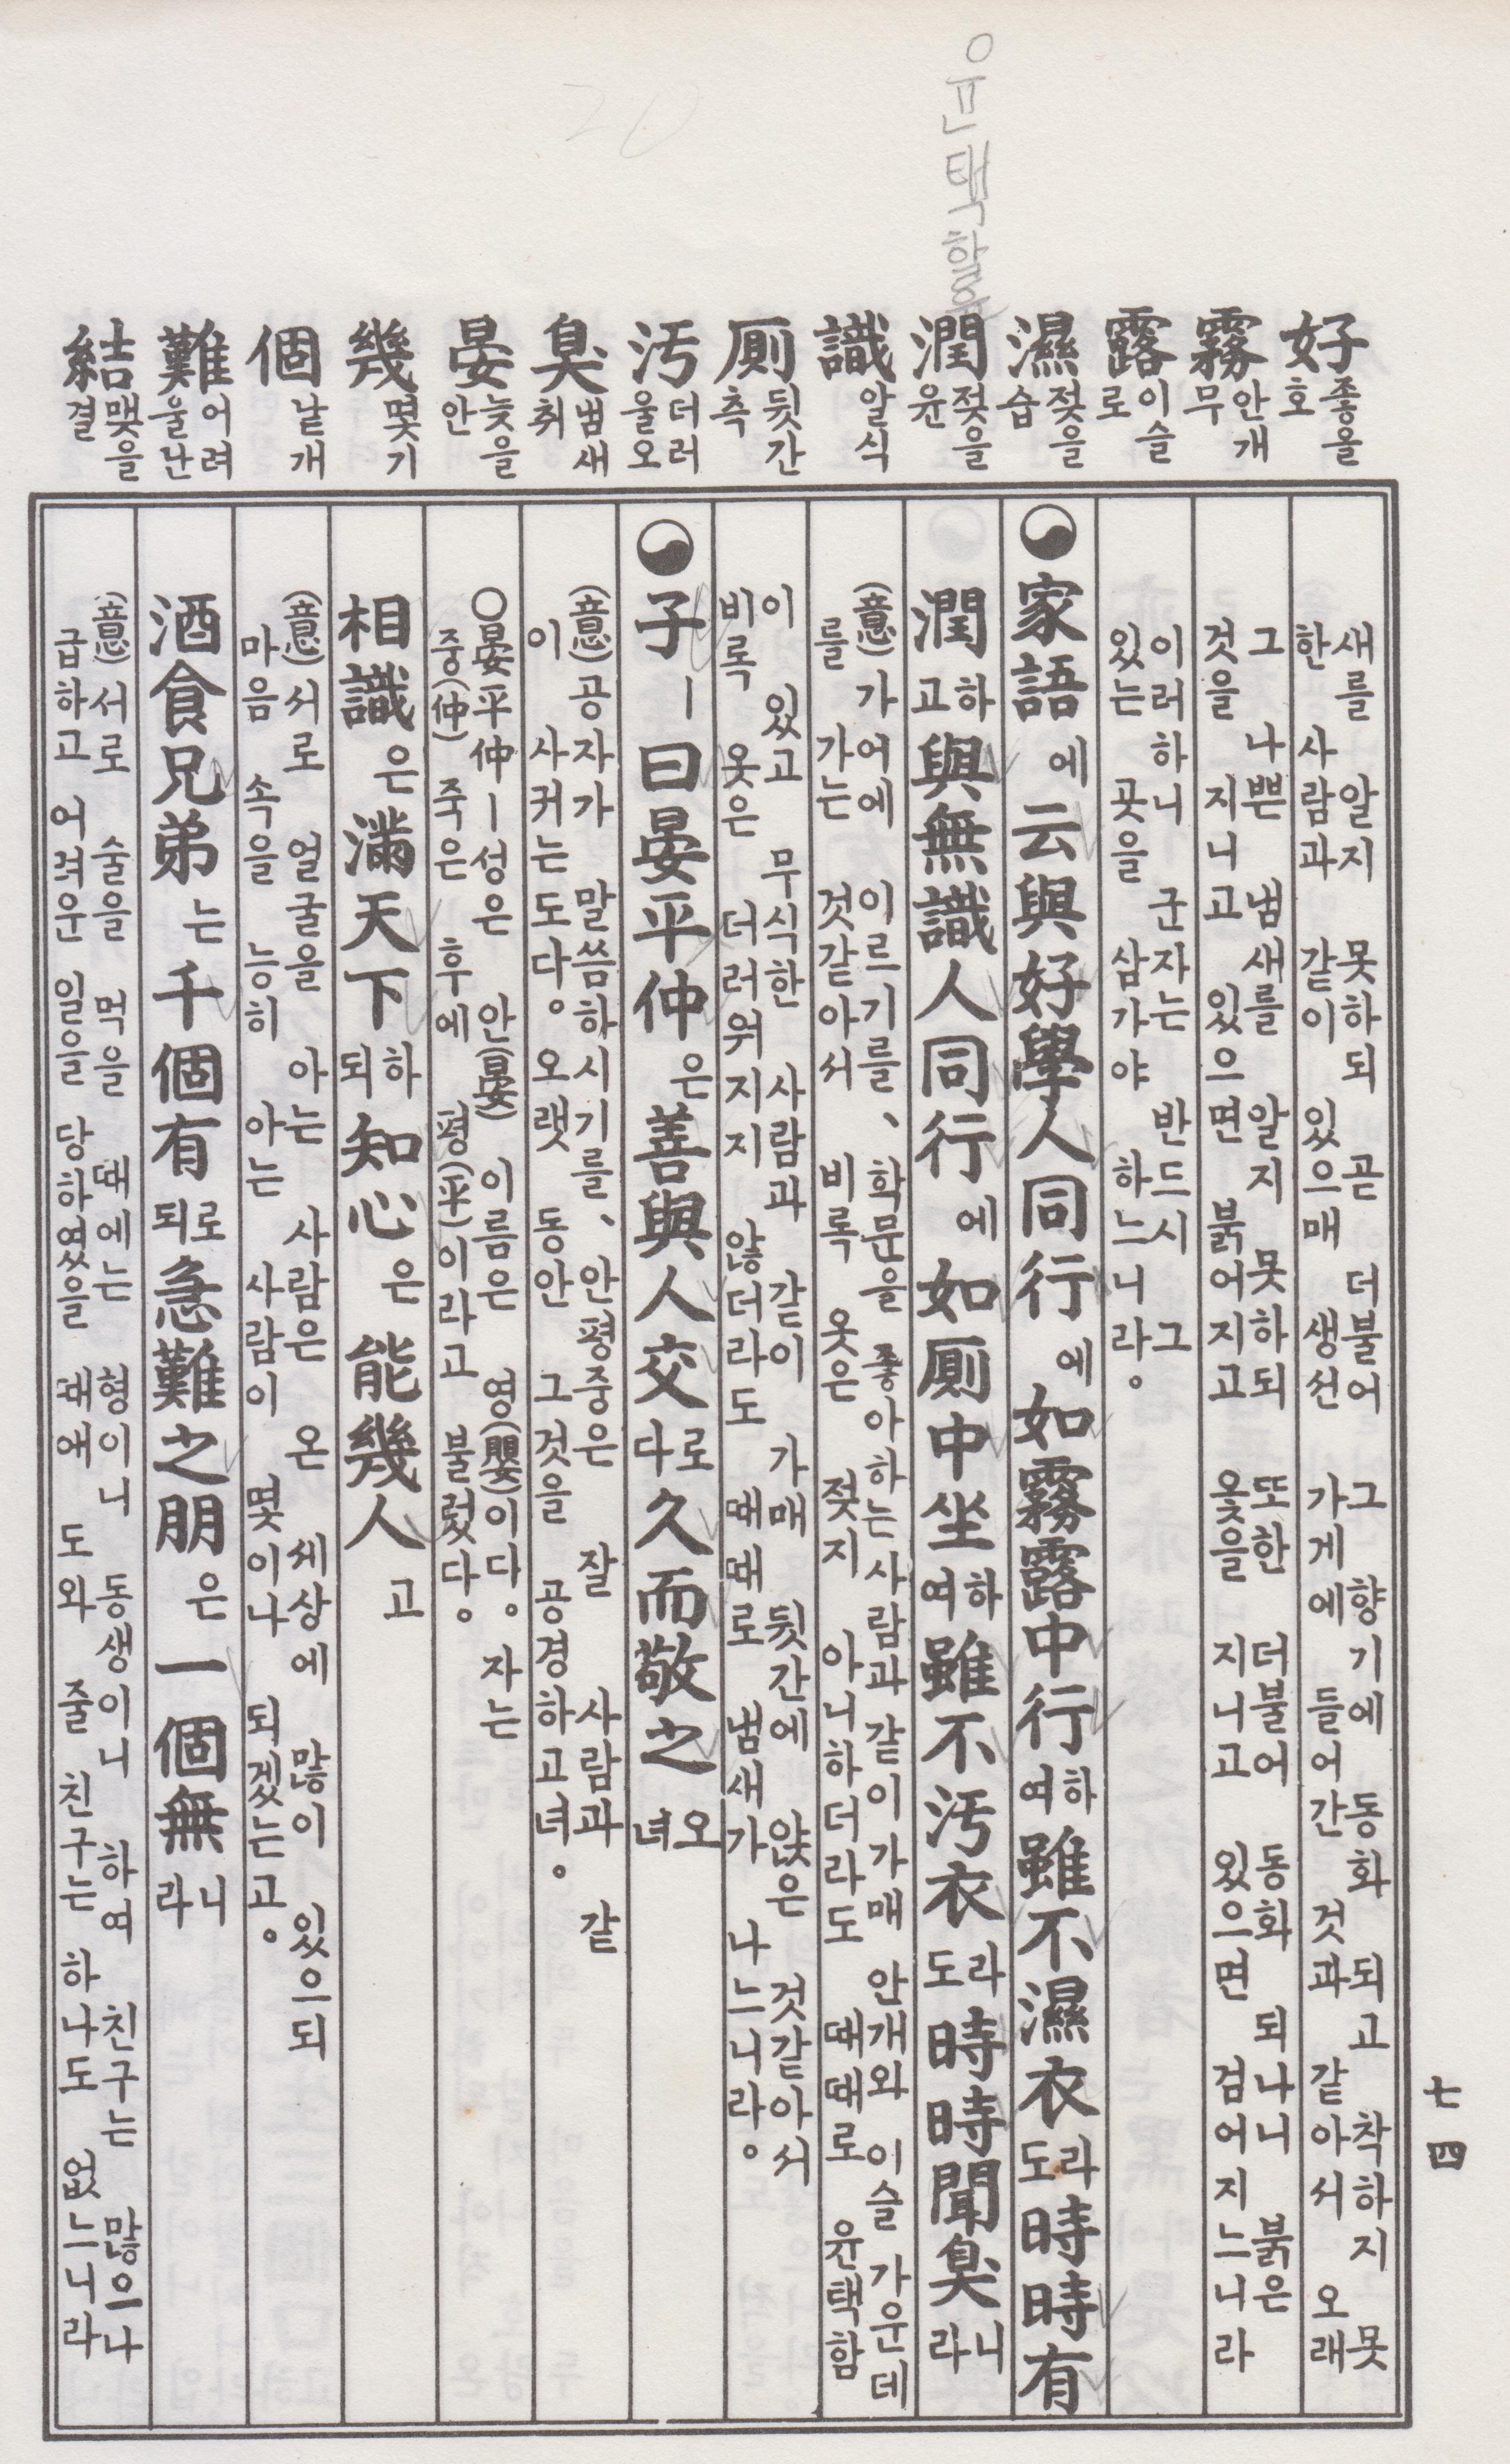 윤택할윤
20
好 좋을호
霧 안개무
露 이슬로
濕 젖을습
潤 젖을윤
識 알식
厠 뒷간측
汚 더러울오
臭 냄새취
晏 늦을안
幾 몇기
個 낱개
難 어려울난
結 맺을결
새를 알지 못하되 곧 더불어 그 향기에 동화 되고 착하지 못
한 사람과 같이 있으매 생선 가게에 들어간 것과 같아서 오래
그 나쁜 냄새를 알지 못하되 또한 더불어 동화 되나니 붉은
것을 지니고 있으면 붉어지고 옻을 지니고 있으면 검어지느니라
이러하니 군자는 반드시 그
있는 곳을 삼가야 하느니라。
家語에云與好學人同行에如霧露中行하여雖不濕衣라도時時有
潤하고與無識人同行에如厠中坐하여雖不汚衣라도時時聞臭니라
(意)가어에 이르기를、학문을 좋아하는 사람과 같이가매 안개와 이슬 가운데
를 가는 것같아서 비록 옷은 젖지 아니하더라도 때때로 윤택함
이 있고 무식한 사람과 같이 가매 뒷간에 앉은 것같아서
비록 옷은 더러워지지 않더라도 때때로 냄새가 나느니라。
子ㅣ曰晏平仲은善與人交로다久而敬之오녀
(意)공자가 말씀하시기를、안평중은 잘 사람과 같
이 사귀는도다。오랫 동안 그것을 공경하고녀。
○晏平仲ㅣ성은 안(晏) 이름은 영(嬰)이다。자는
중(仲) 죽은 후에 평(平)이라고 불렀다。
相識은滿天下하되知心은能幾人고
(意)서로 얼굴을 아는 사람은 온 세상에 많이 있으되
마음 속을 능히 아는 사람이 몇이나 되겠는고。
酒食兄弟는千個有로되急難之朋은一個無니라
(意)서로 술을 먹을 때에는 형이니 동생이니 하여 친구는 많으나
급하고 어려운 일을 당하였을 때애 도와 줄 친구는 하나도 없느니라
七四